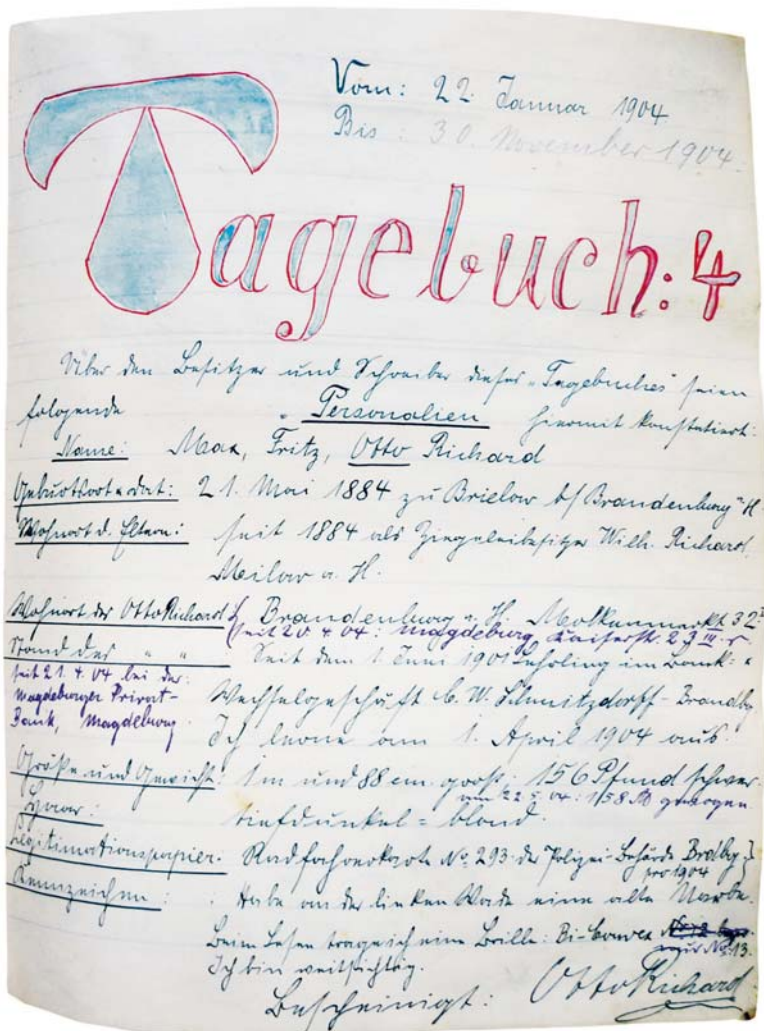 Vom: 22. Januar 1904
Bis: 30. November 1904.
Tagebuch: 4
Über den Besitzer und Schreiber dieses „Tagebuches" seien
folgende Personalien hiermit konstatiert:
Name: Max, Fritz, Otto Richard
Geburtsort u. dat: 21. Mai 1884 zu Brielow b/Brandenburg a. H.
Wohnort d. Eltern: seit 1884 als Ziegeleibesitzer Wilh. Richard,
Milow a. H.
Wohnort des Otto Richard: Brandenburg a. H. Molkenmarkt 32
(seit 20 4 04: Magdeburg, Kaiserstr. 23 III. r.
Stand des " " Seit dem 1. Juni 1901 Lehrling im Bank- u
seit 21. 4. 04 bei der:
Magdeburger Privat-
Bank, Magdeburg.
Wechselgeschäft C. W. Schmitzdorff - Brandbg
Ich lerne am 1. April 1904 aus.
Größe und Gewicht: 1 m und 88 cm. groß; 156 Pfund schwer
am 22 5. 04: 158 gewogen
Haar: tiefdunkel = blond.
Legitimationspapier: Radfahrerkarte No. 293 der Polizei-Behörde Brdbg
pro 1904
Kennzeichen: Habe an der linken Wade eine alte Narbe.
Beim Lesen trage ich eine Brille: Bi-Convex
No. 13.
Ich bin weitsichtig.
Bescheinigt: Otto Richard